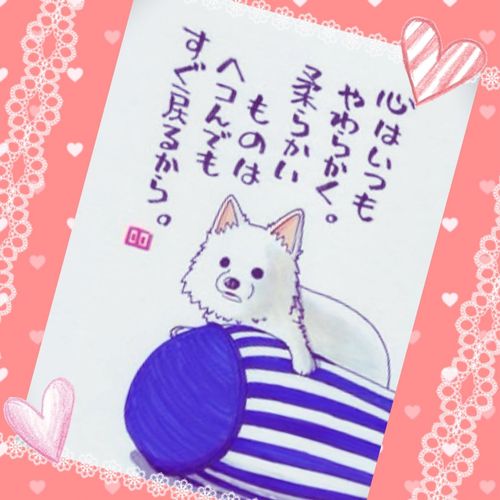 心はいつも
やわらかく。
柔らかい
ものは
ヘコんでも
すぐ戻るから。